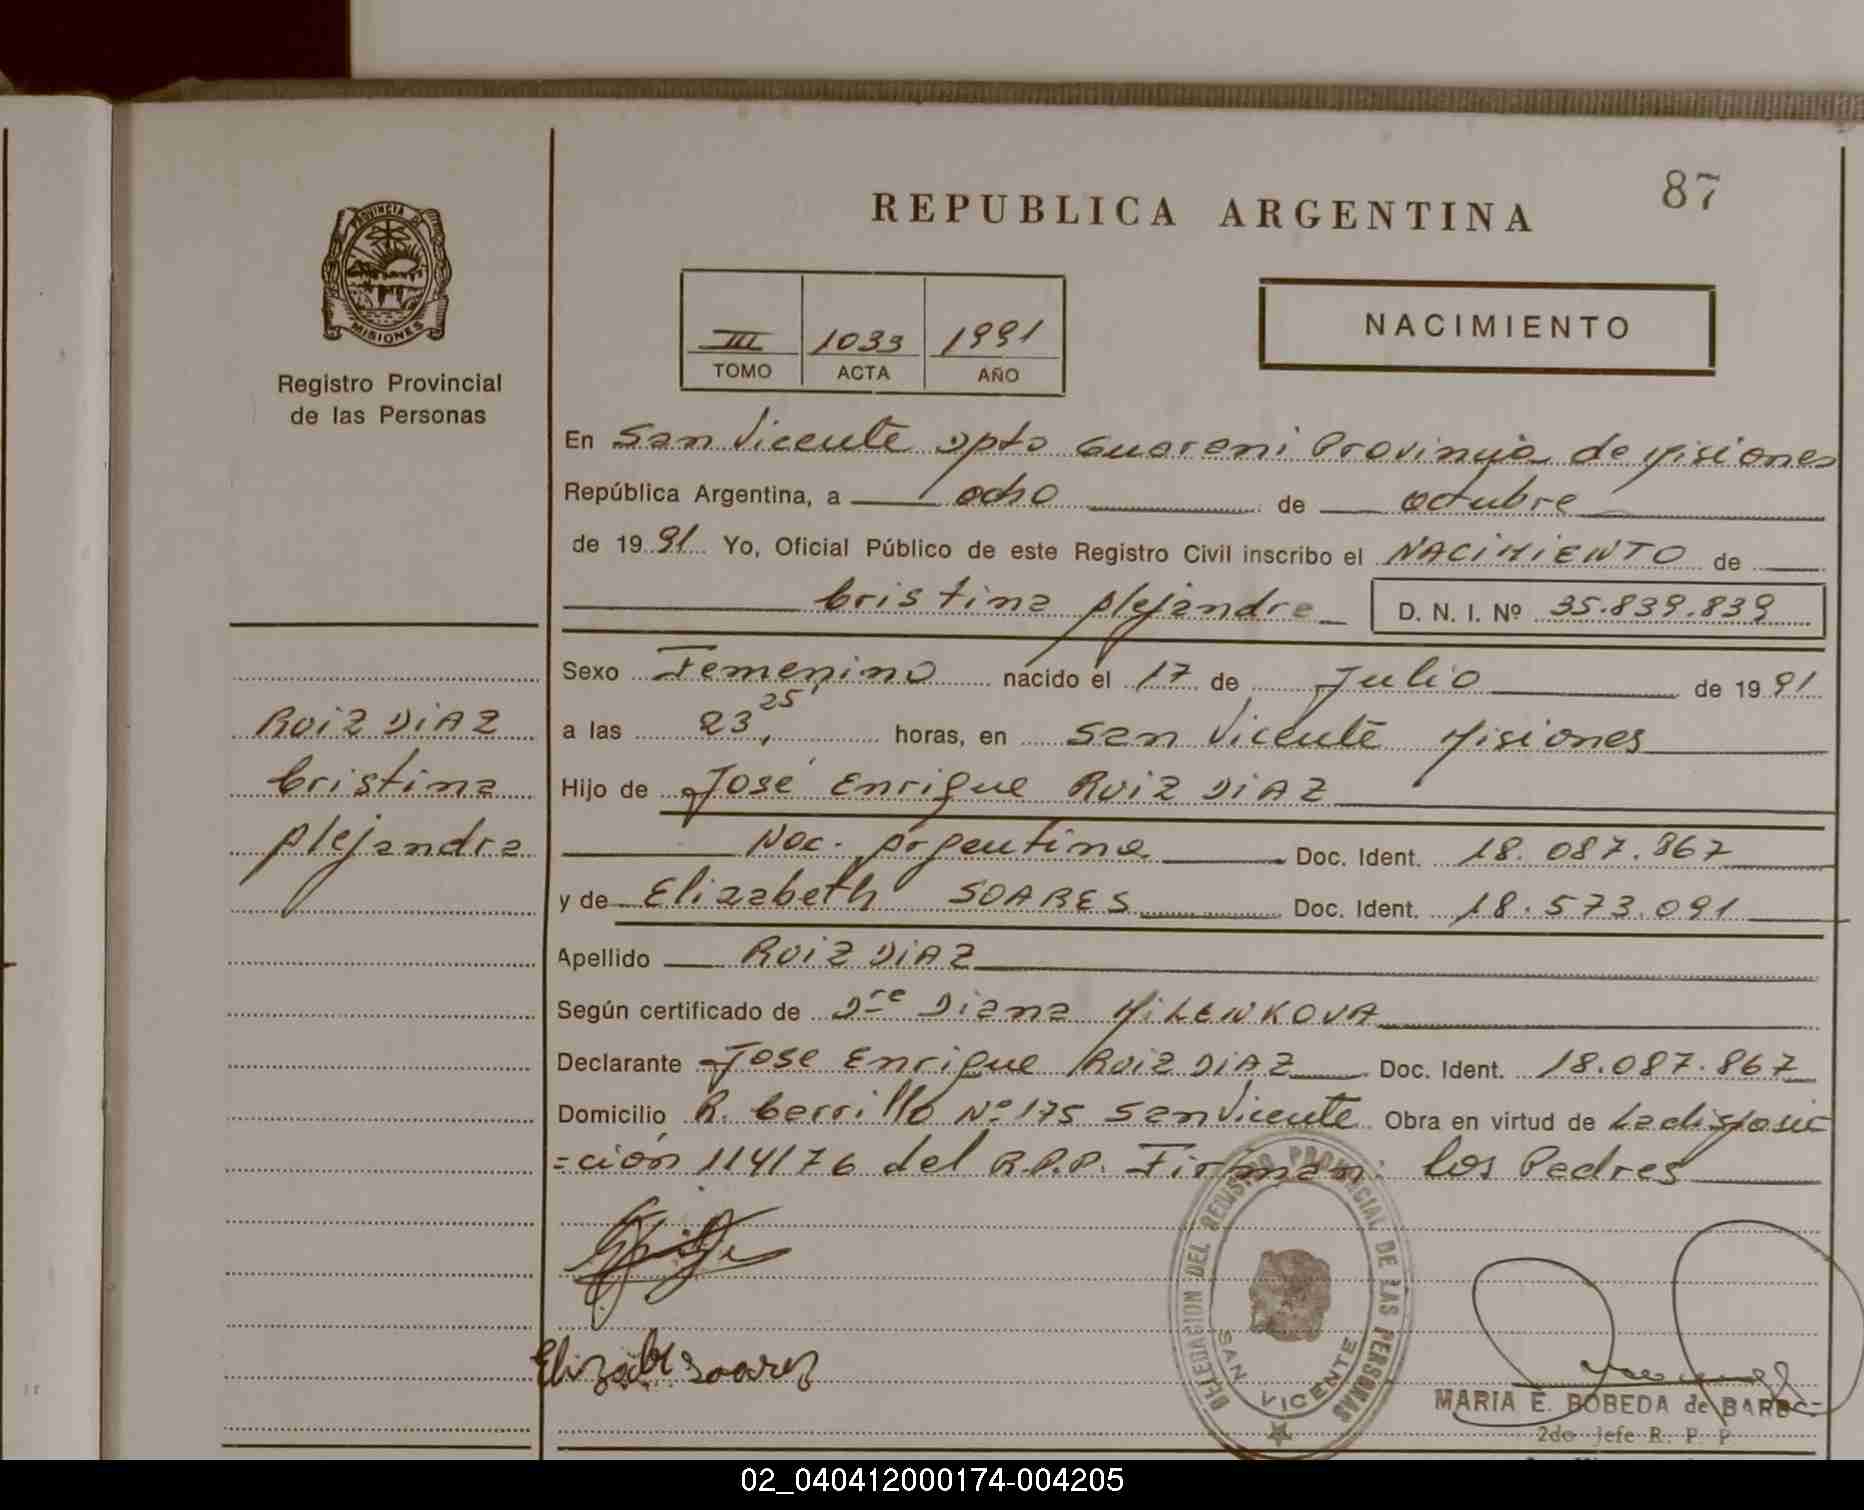 87
REPUBLICA ARGENTINA
PROVINCIA DE
MISIONES
Registro Provincial
de las Personas
III 1033 1991
TOMO ACTA AÑO
NACIMIENTO
En San Vicente Dpto Guarani Provincia de Misiones
República Argentina, a ocho de octubre
de 1991 Yo, Oficial Público de este Registro Civil inscribo el NACIMIENTO de
Cristina Alejandra D. N. I. Nº 35.839.839
Sexo Femenino nacido el 17 de Julio de 1991
a las 23,25 horas, en San Vicente Misiones
Hijo de José Enrique RUIZ DIAZ
Nac. Argentina Doc. Ident. 18.087.867
y de Elizabeth SOARES Doc. Ident. 18.573.091
Apellido RUIZ DIAZ
Según certificado de Dra Diana MILENKOVA
Declarante José Enrique RUIZ DIAZ Doc. Ident. 18.087.867
Domicilio R. Carrillo Nº 175 San Vicente Obra en virtud de La disposic
=ción 114/76 del R.P.P. Firman: los Padres
RUIZ DIAZ
Cristina
Alejandra
Elizabet Soares
DELEGACION DEL REGISTRO PROVINCIAL DE LAS PERSONAS
SAN VICENTE
MARIA E. BOBEDA de
2do Jefe R. P. P
02_040412000174-004205